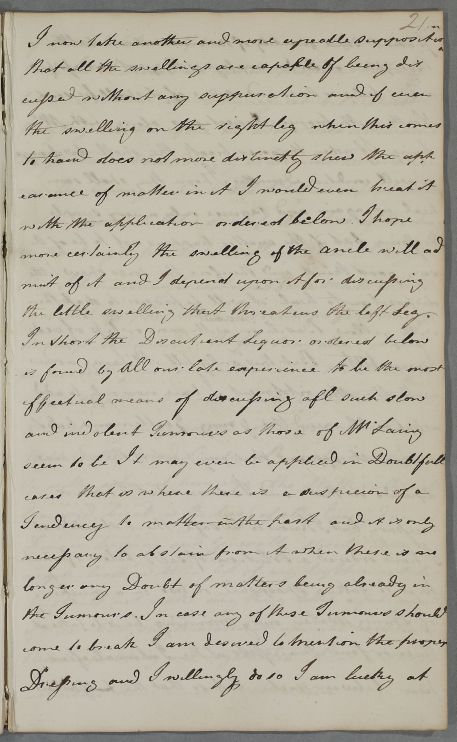 21
I now take another and more agreable supposition
that all the swellings are capable of being dis
cussed without any suppuration and if even
the swelling on the right leg when this comes
to hand does not more distinctly shew the app
earance of matter in it I would even treat it
with the application ordered below I hope
more certainly the swelling of the ancle will ad
mit of it and I depend upon it for discussing
the little swelling that threatens the left Leg.
In short the Discutient Liquor ordered below
is found by All our late experience to be the most
effectual means of discussing all such slow
and indolent Tumours as those of Mr Laing
seem to be It may even be applied in Doubtfull
cases that is where there is a suspicion of a
Tendency to matter in the part and it is only
necessary to abstain from it when there is no
longer any Doubt of matters being already in
the Tumours. In case any of these Tumours should
come to break I am desired to mention the proper
Dressing and I willingly do so I am lucky at